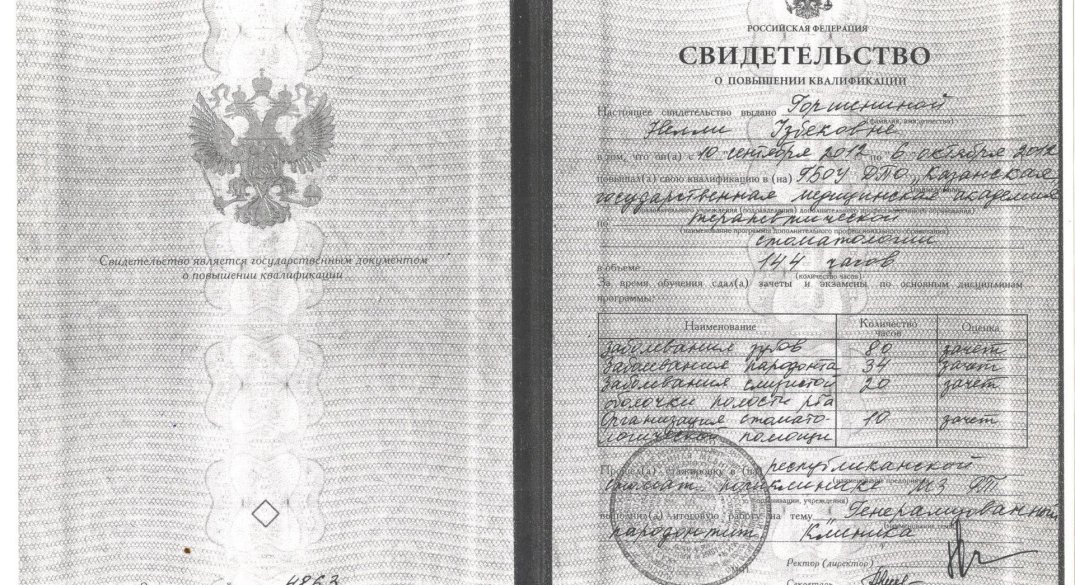 Свидетельство является государственным документом
о повышении квалификации
4863
РОССИЙСКАЯ ФЕДЕРАЦИЯ
СВИДЕТЕЛЬСТВО
О ПОВЫШЕНИИ КВАЛИФИКАЦИИ
Настоящее свидетельство выдано Горшениной
(фамилия, имя, отчество)
Нелли Узбековне
в том, что он(а) с 10 сентября 2012 по 6 октября 2012
повышал(а) свою квалификацию в (на) ГБОУ ДПО „Казанская
государственная медицинская академия
образовательного учреждения (подразделения) дополнительного профессионального образования)
по терапевтической
(наименование программы дополнительного профессионального образования)
стоматологии
в объеме 144 часов
(количество часов)
За время обучения сдал(а) зачеты и экзамены по основным дисциплинам
программы:
Наименование Количество часов Оценка
Заболевания зубов 80 зачет
Заболевания пародонта 34 зачет
Заболевания слизистой 20 зачет
оболочки полости рта
Организация стомато- 10 зачет
логической помощи
Прошел(а) стажировку в (на) республиканской
(наименование предприятия,
стомат. поликлинике МЗ РТ
организации, учреждения)
выполнил(а) итоговую работу на тему Генерализованный
пародонтит Клиника
Ректор (директор)
Секретарь